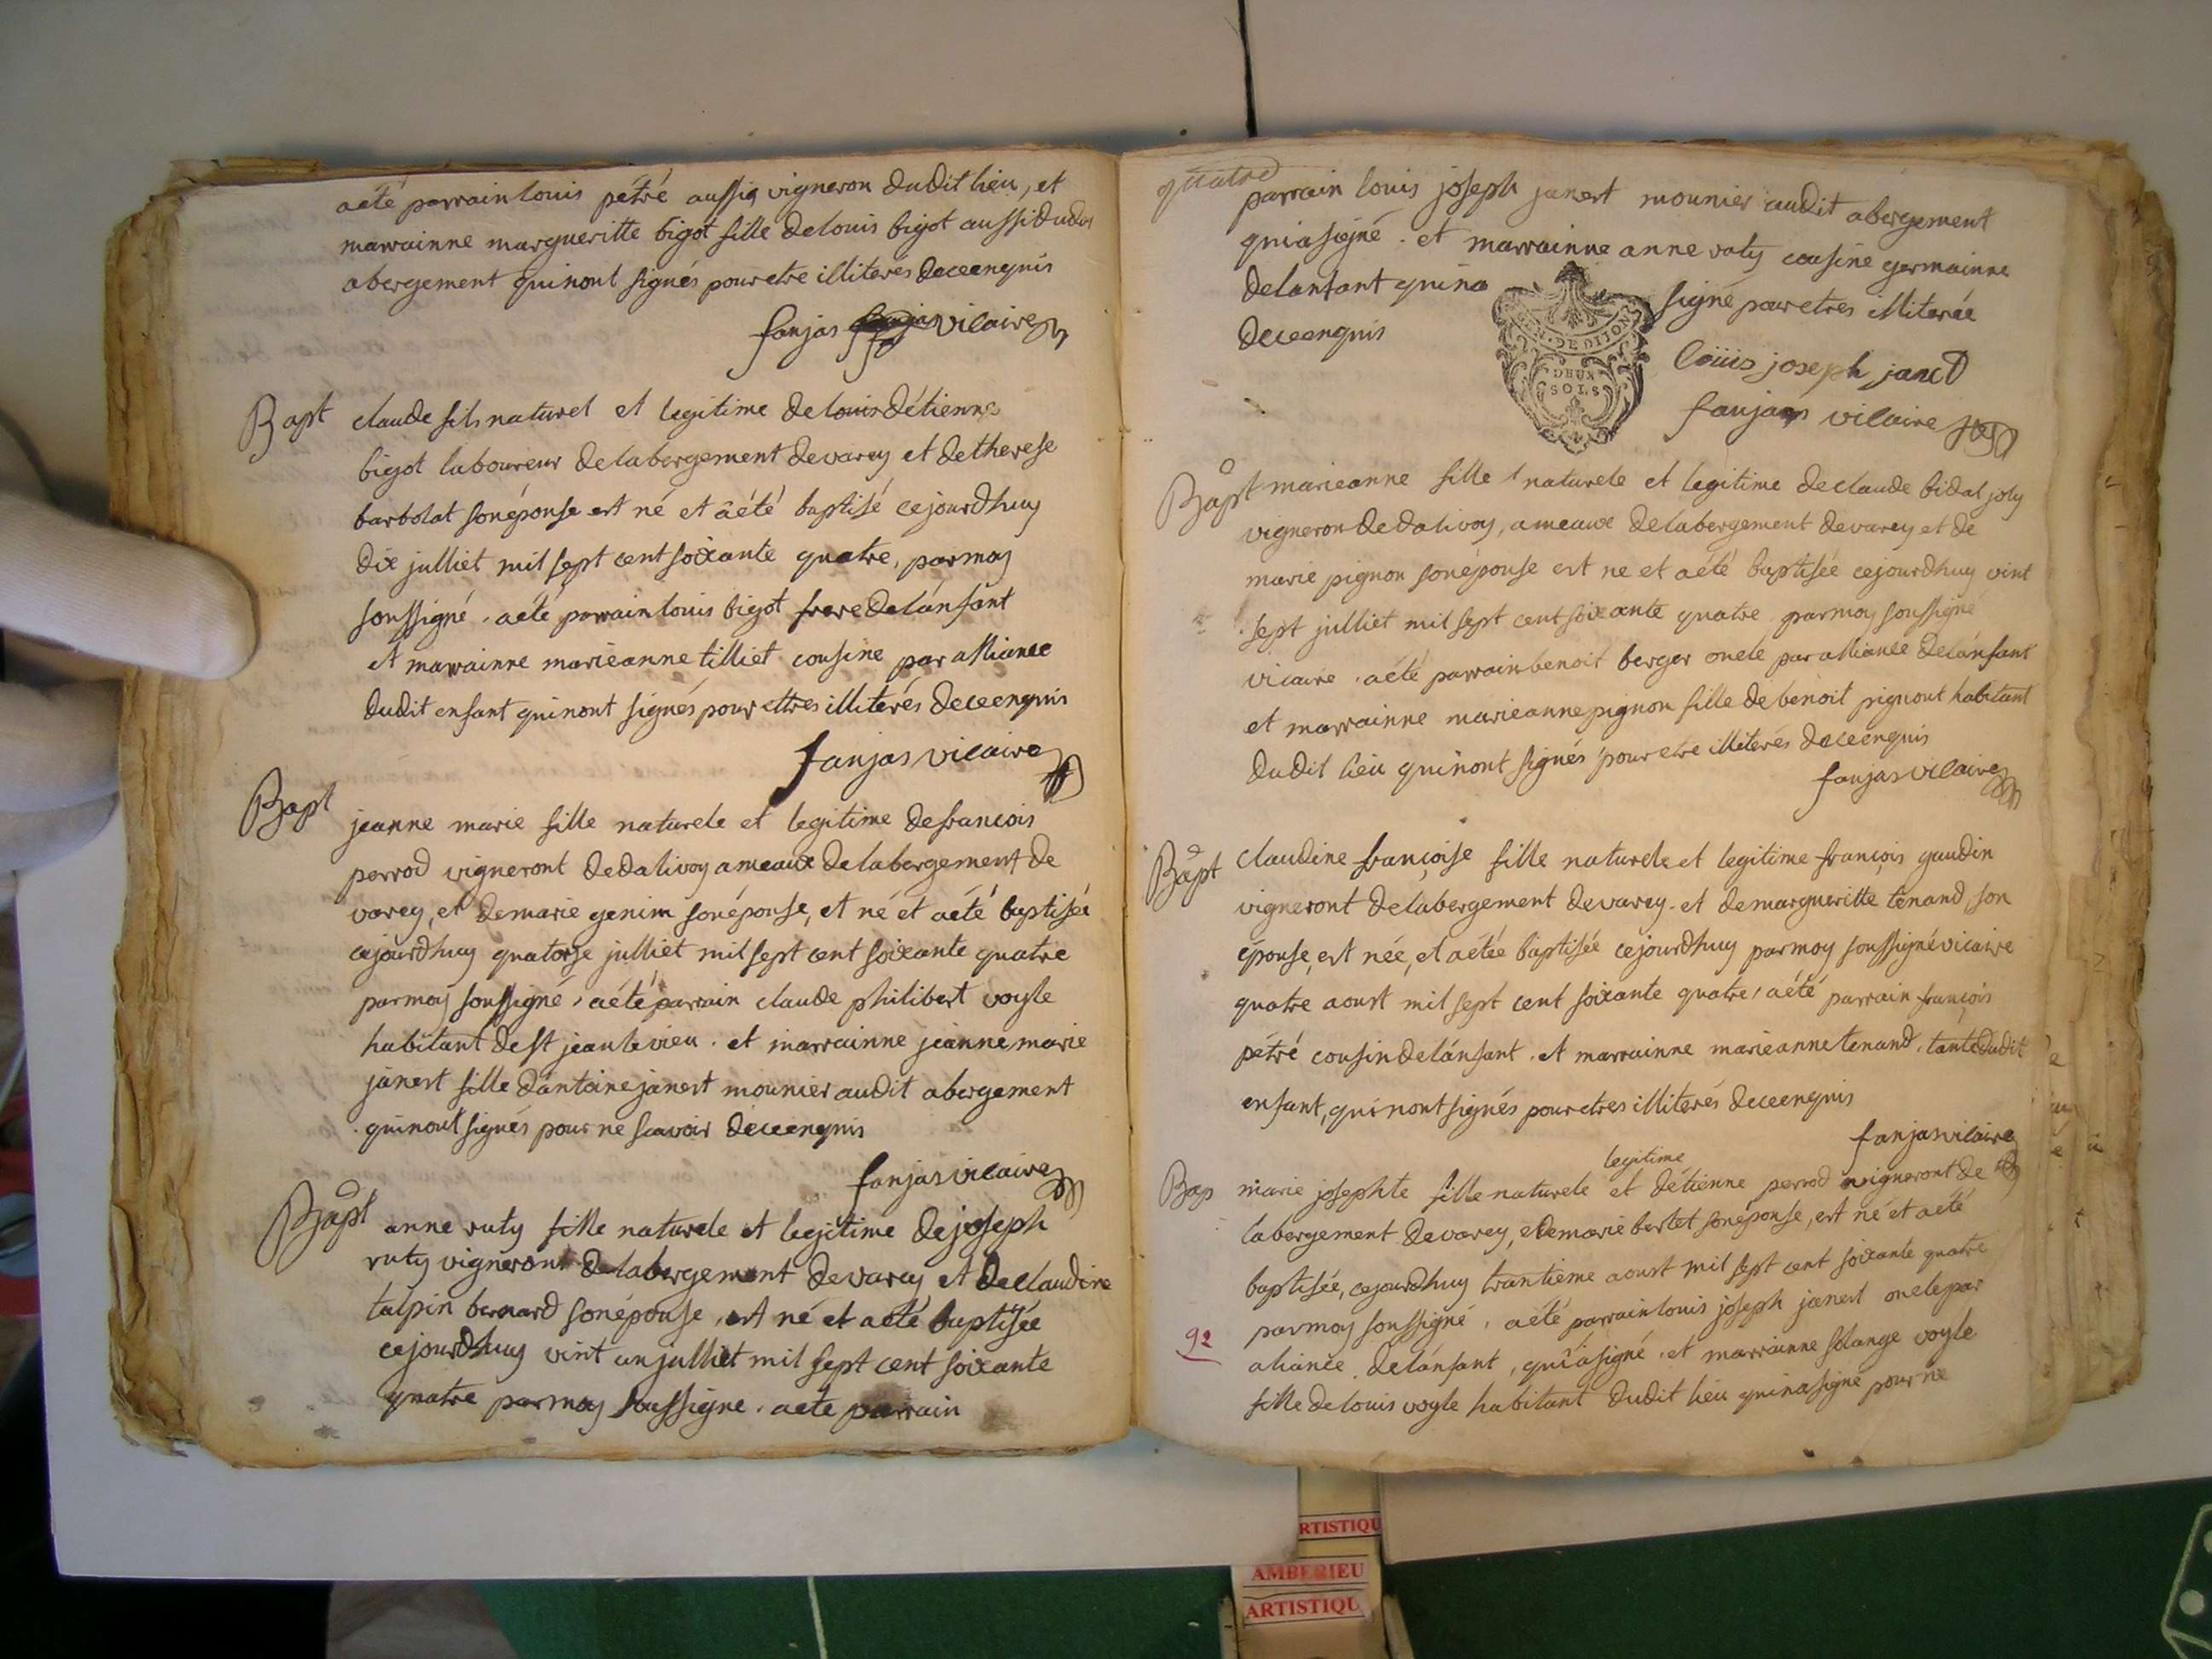 aété parrain louis pétré aussig vigneron dudit lieu, et
marrainne margueritte bigot fille delouis bigot aussi dudit
abergement quinont signés pour etre illiterés deceenquis
fanjas vicaire
Bapt
claude fils naturel et legitime de louis détienne
bigot laboureur delabergement devarey et detherese
barbolat sonépouse est né et aété baptisé cejourdhuy
dix julliet mil sept cent soixante quatre, parmoy
soussigné. aété parrain louis bigot frere delánfant
et marrainne marieanne tilliet cousine par alliance
dudit enfant quinont signés pour ettres illiterés deceenquis
fanjas vicaire
Bapt
jeanne marie fille naturele et legitime defrancois
perrod vigneront dedalivoy ameaux delabergement de
varey, et demarie genim sonépouse, et né et aété baptisée
cejourdhuy quatorse julliet mil sept cent soixante quatre
parmoy soussigné, aété parrain claude philibert voyle
habitant de st jean le vieu. et marrainne jeanne marie
janest fille dántoine janest mounier audit abergement
quinont signés pour ne scavoir deceenquis
fanjas vicaire
Bapt
anne ruty fille naturele et legitime de joseph
ruty vigneront delabergement devarey et declaudine
talpin bernard sonépouse, est né et aété baptisée
cejourdhuy vint un julliet mil sept cent soixante
quatre parmoy soussigne. aete parrain
quatre
parrain louis joseph janest mounier audit abergement
quia signé. et marrainne anne ruty cousine germainne
delanfant quina signé pour etres illiterée
deceenquis
GEN. DE DIJON
DEUX
SOLS
loüis joseph janet
fanjas vicaire
Bapt
marieanne fille naturele et legitime declaude bidal joly
vigneron dedalivoy, ameaux delabergement devarey et de
marie pignon sonépouse est ne et aété baptisée cejourdhuy vint
sept julliet mil sept cent soixante quatre parmoy soussigné
vicaire. aété parrain benoit berger oncle par alliance delánfant
et marrainne marieanne pignon fille de benoit pignont habitant
dudit lieu quinont signés pour etre illiterés deceenquis
fanjas vicaire
Bapt
claudine françoise fille naturele et legitime françois gaudin
vigneront delabergement devarey. et demargueritte tenand, son
épouse, est née, et aétée baptisée cejourdhuy parmoy soussigné vicaire
quatre aoust mil sept cent soixante quatre, aété parrain françois
pétré cousin delánfant. et marrainne marieanne tenand. tante dudit
enfant, quinont signés pour etres illiterés deceenquis
fanjas vicaire
Bap
legitime
marie josephte fille naturele et détienne perrod vigneront de
labergement devarey, et demarie berlet sonépouse, est né et aété
baptisée, cejourdhuy trantieme aoust mil sept cent soixante quatre
parmoy soussigné, aété parrain louis joseph janest oncle par
aliance. delánfant, quiásigné. et marrainne solange voyle
92
fille de louis voyle habitant dudit lieu quinasigné pour ne
RTISTIQU
AMBERIEU
ARTISTIQU